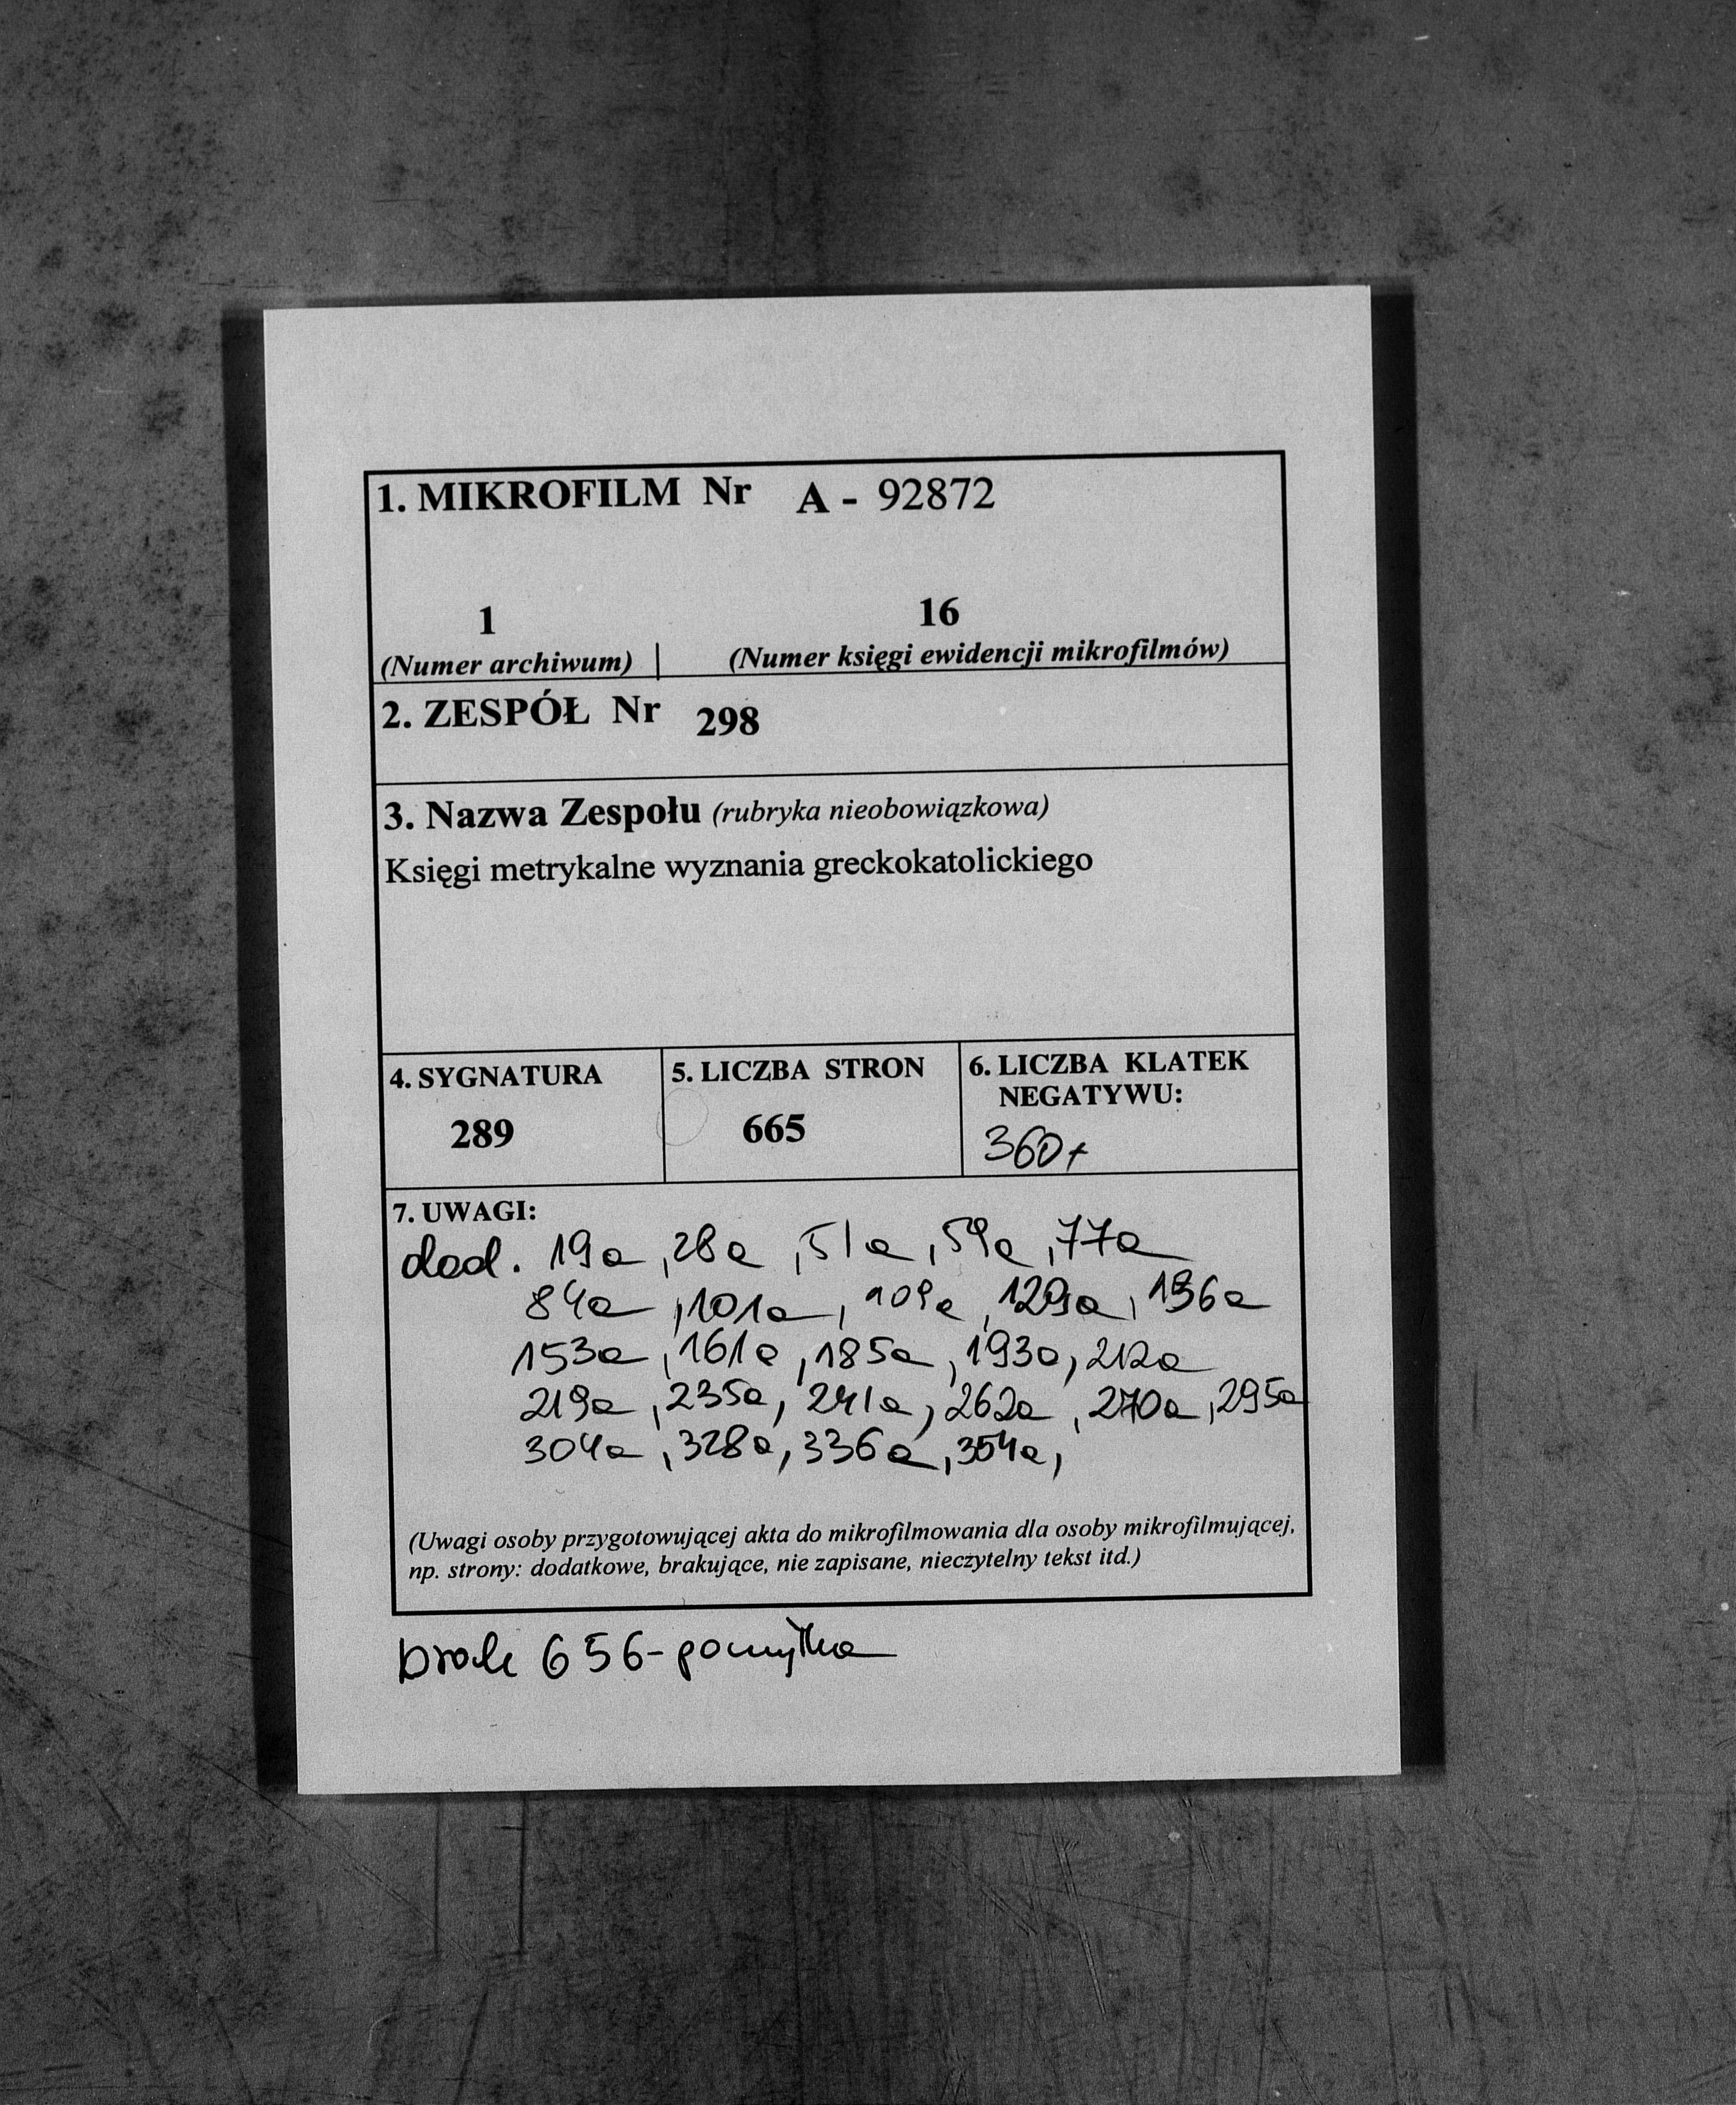 1. MIKROFILM Nr A - 92872
1 16
(Numer archiwum) | (Numer księgi ewidencji mikrofilmów)
2. ZESPÓŁ Nr 298
3. Nazwa Zespołu (rubryka nieobowiązkowa)
Księgi metrykalne wyznania greckokatolickiego
4. SYGNATURA
289
5. LICZBA STRON
665
6. LICZBA KLATEK
NEGATYWU:
360+
7. UWAGI:
dod. 19a, 28a, 51a, 59a, 77a
84a, 101a, 109a, 129a, 136a
153a, 161a, 185a, 193a, 212a
219a, 235a, 241a, 262a, 270a, 295a
304a, 328a, 336a, 354a,
(Uwagi osoby przygotowującej akta do mikrofilmowania dla osoby mikrofilmującej,
np. strony: dodatkowe, brakujące, nie zapisane, nieczytelny tekst itd.)
brak 656-pomyłka